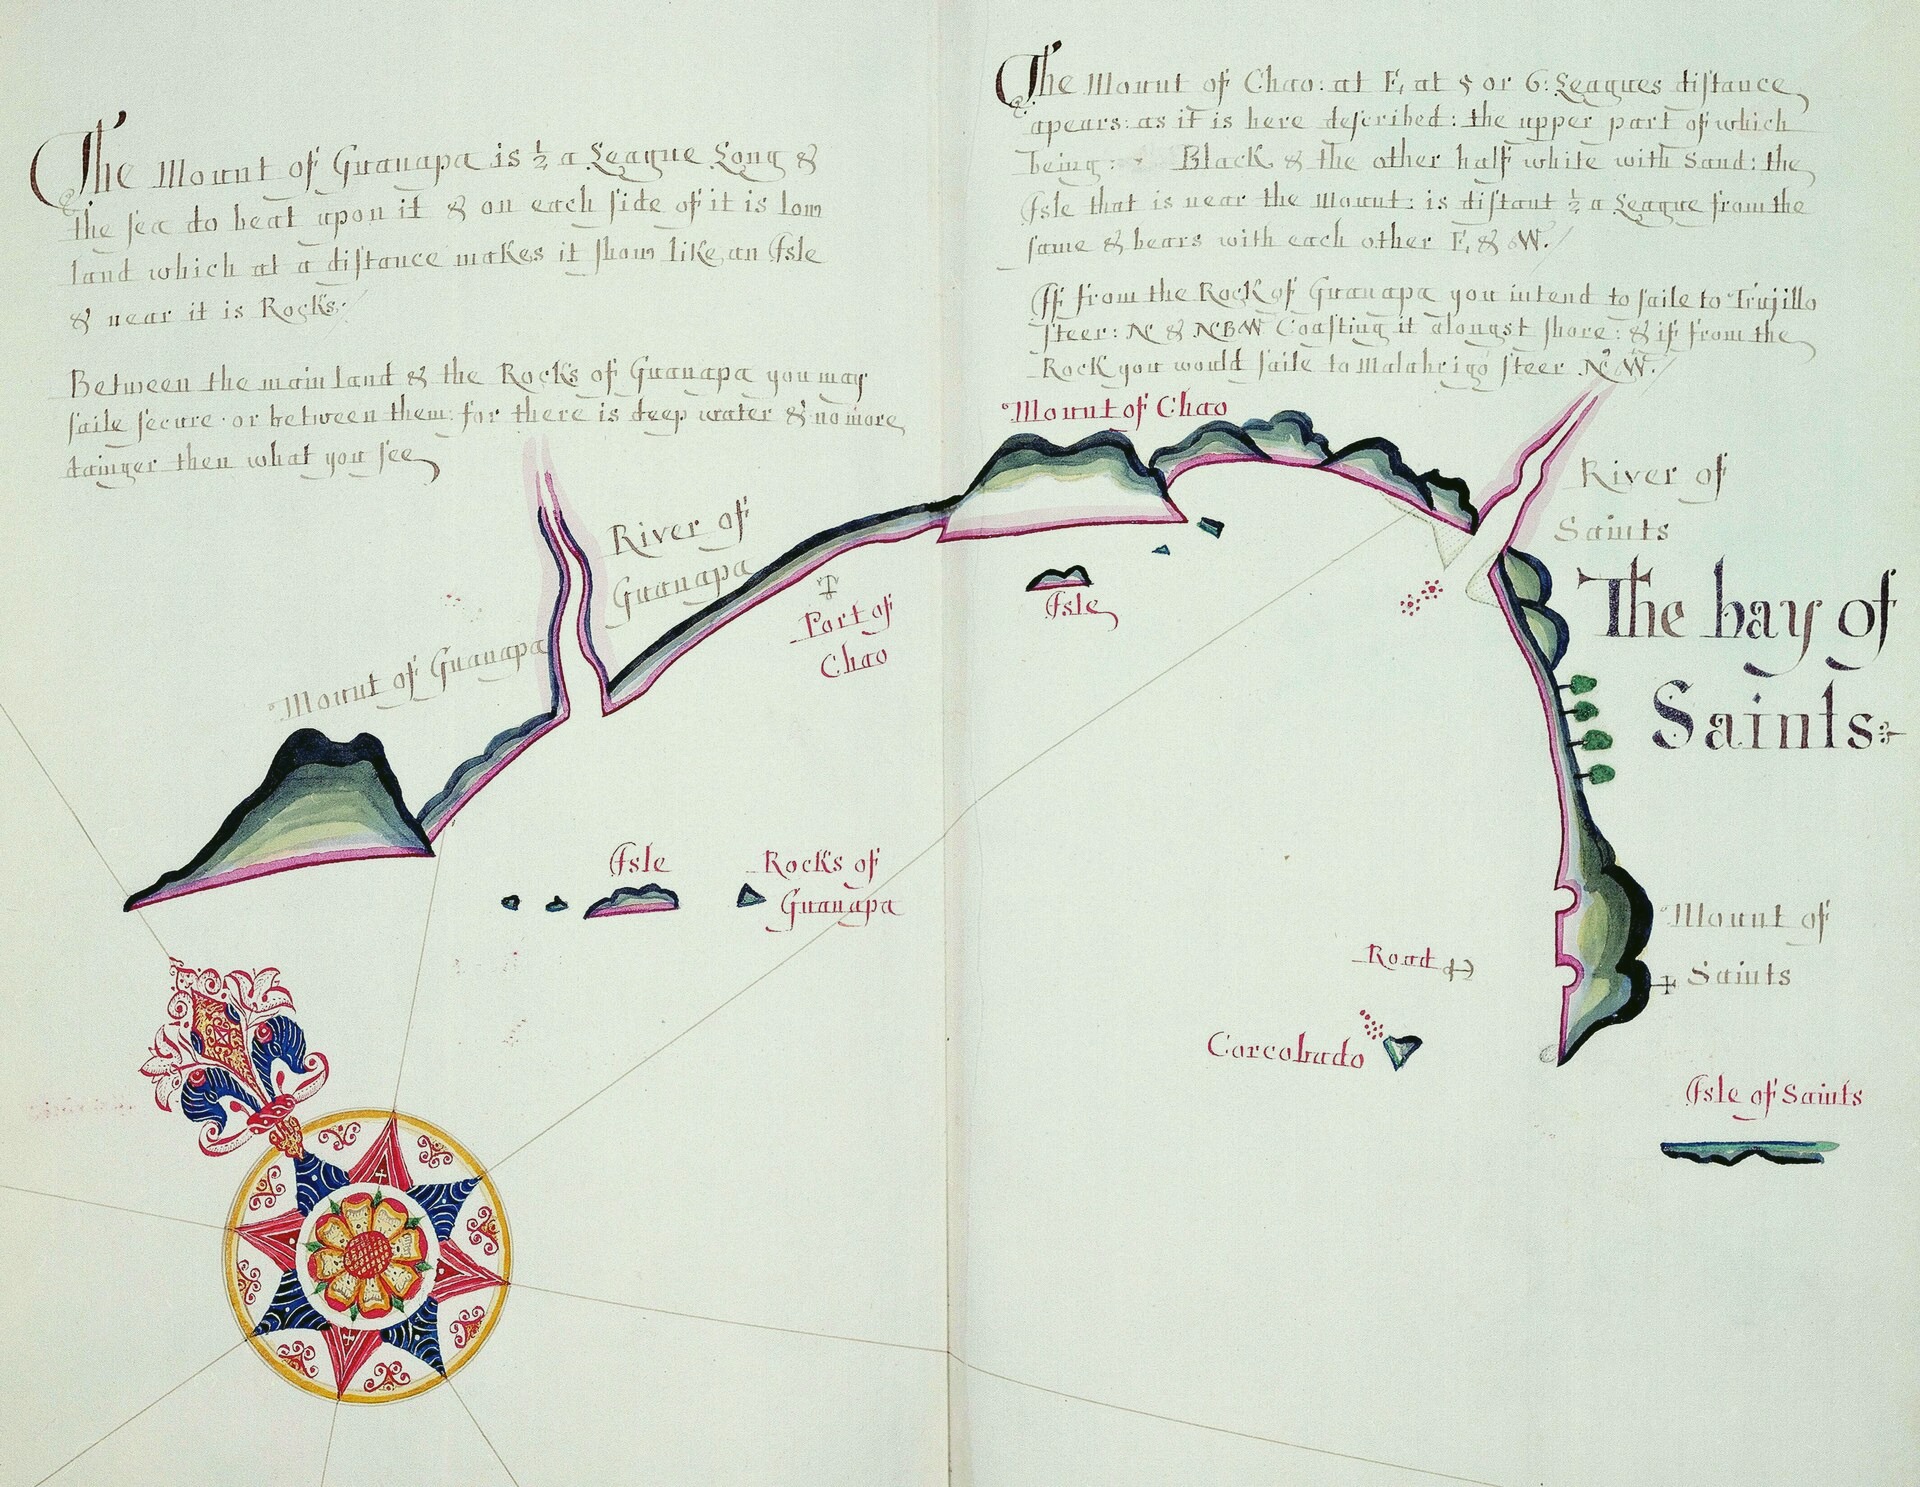 The Mount of Guanapa is ½ a League Long &
the sea do beat upon it & on each side of it is low
land which at a distance makes it show like an Isle
& near it is Rocks:
Between the main land & the Rocks of Guanapa you may
saile secure or between them: for there is deep water & no more
dainger then what you see
The Mount of Chao: at E, at 5 or 6: Leagues distance
apears: as it is here described: the upper part of which
being: Black & the other half white with Sand: the
Isle that is near the Mount: is distant ½ a League from the
same & bears with each other E, & W.
If from the Rock of Guanapa you intend to saile to Trujillo
steer: N & NBW Coasting it alongst shore: & if from the
Rock you would saile to Malabrigo steer N.W.
Mount of Chao
River of
Saints
River of
Guanapa
Port of
Chao
Isle
The bay of
Saints
Mount of Guanapa
Isle
Rocks of
Guanapa
Mount of
Saints
Road
Corcobado
Isle of Saints